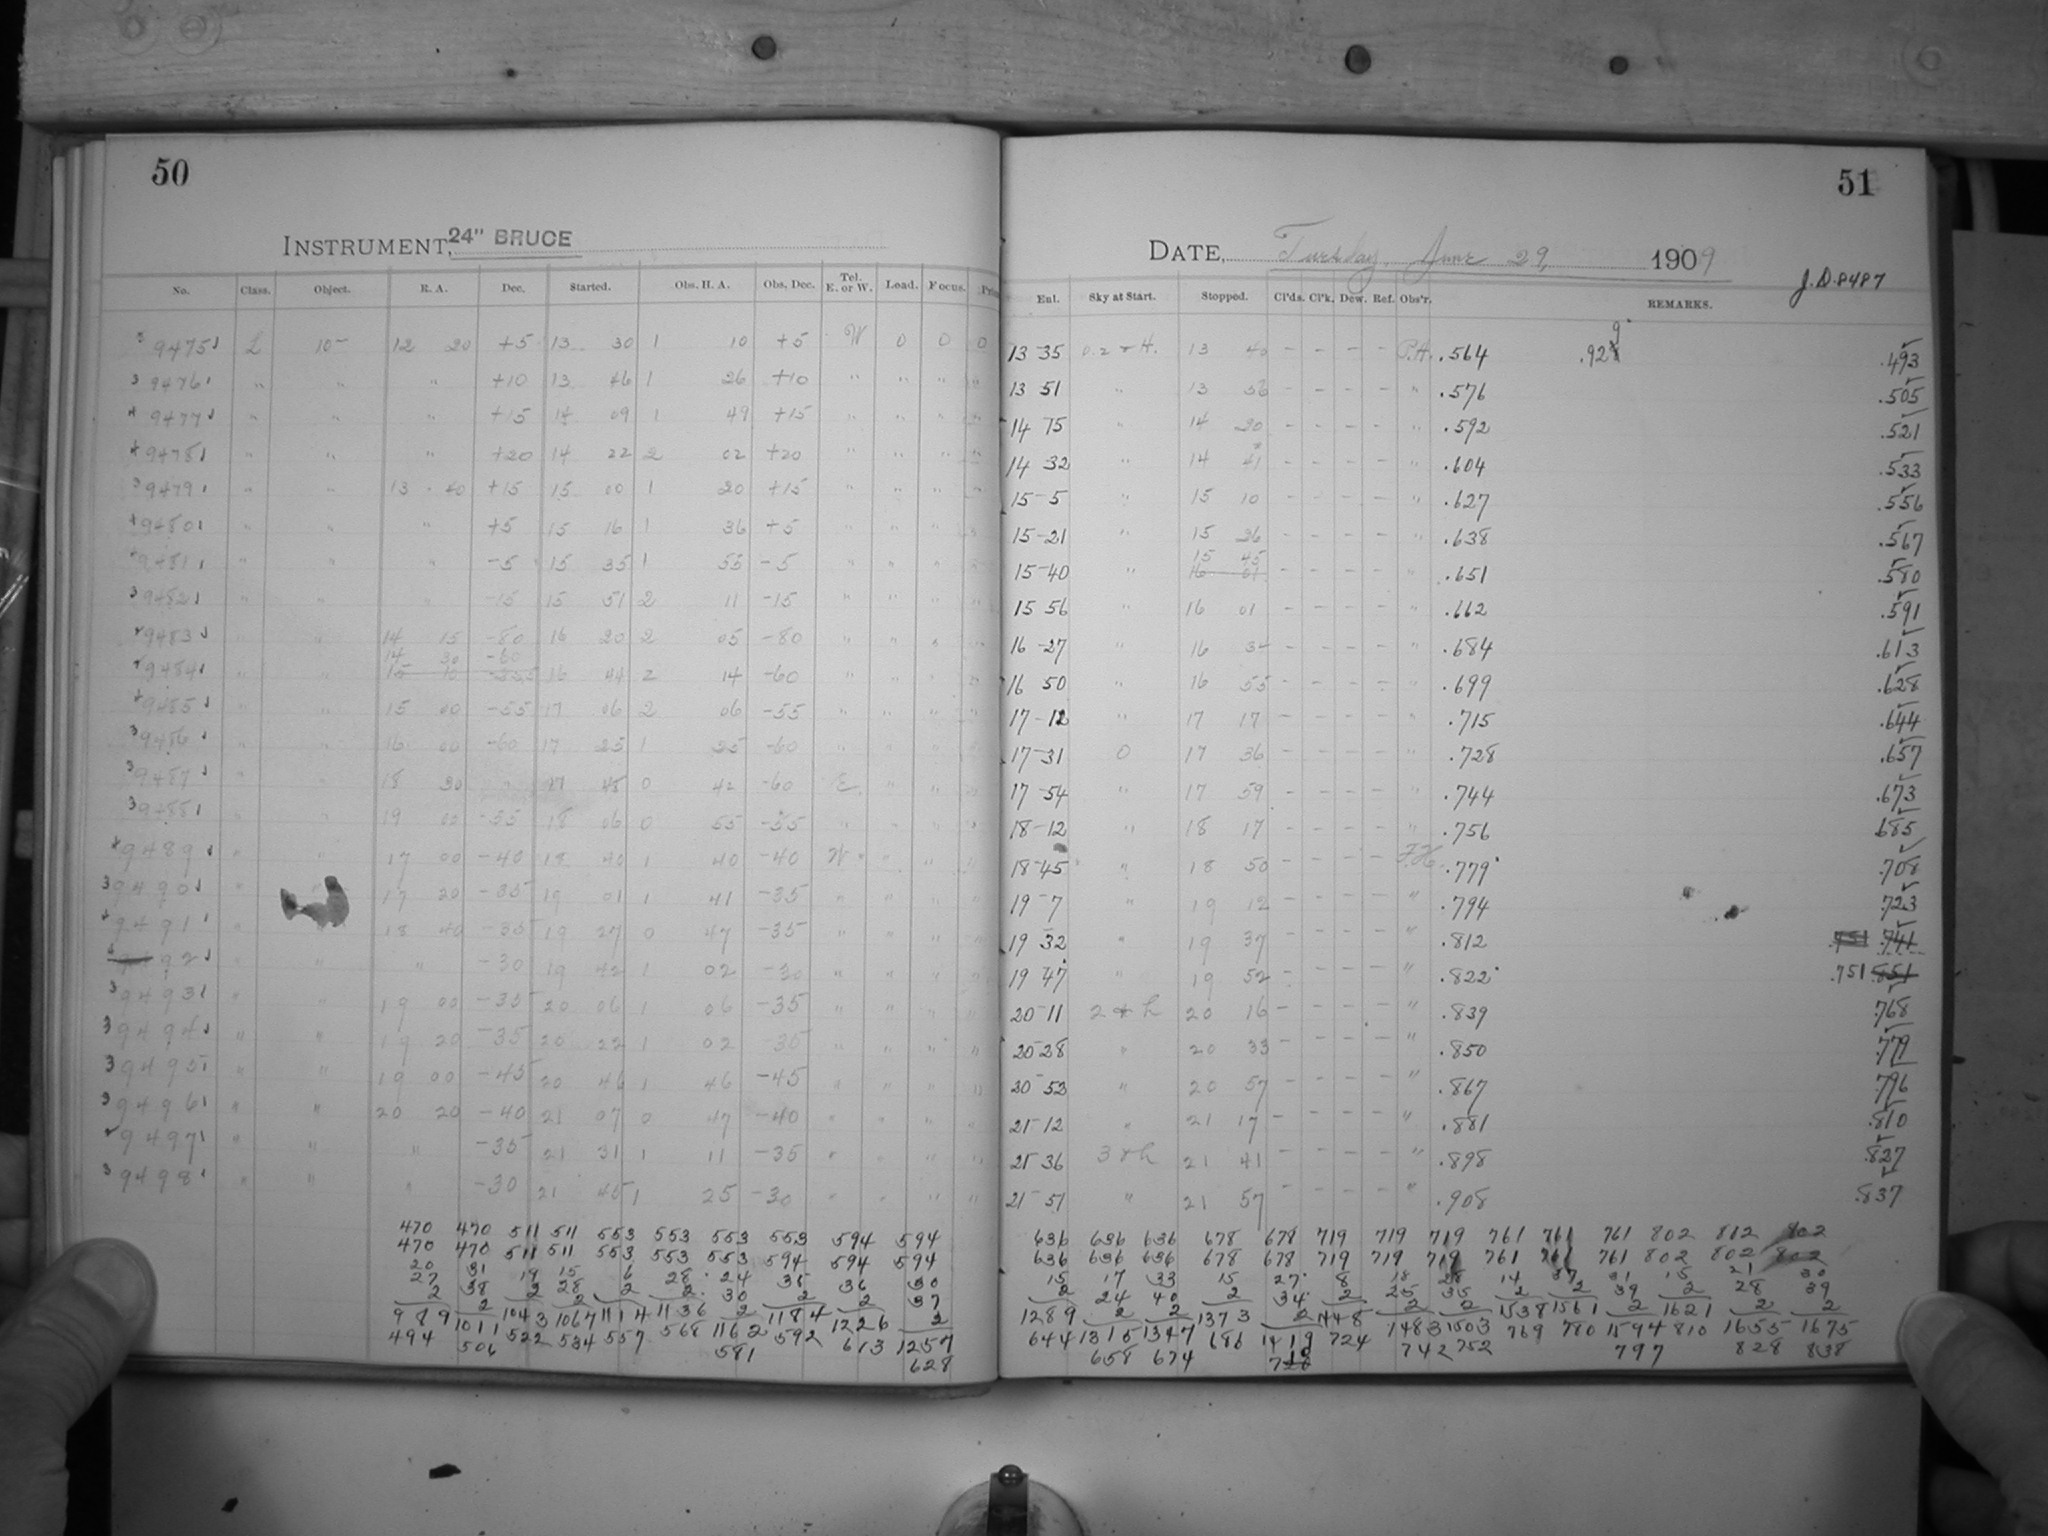 50
INSTRUMENT, 24" BRUCE
No. Class. Object. R. A. Dec. Started. Obs. H. A. Obs. Dec. Tel. E. or W. Load. Focus.
9475 L 10- 12 20 +5 13 30 1 10 +5 W 0 0 0
9476 " " " +10 13 46 1 26 +10 " " " "
9477 " " " +15 14 09 1 49 +15 " " " "
9478 " " " +20 14 22 2 02 +20 " " " "
9479 " " 13 40 +15 15 00 1 20 +15 " " " "
9480 " " " +5 15 16 1 36 +5 " " " "
9481 " " " -5 15 35 1 55 -5 " " " "
9482 " " " -15 15 51 2 11 -15 " " " "
9483 " " 14 15 -80 16 20 2 05 -80 " " " "
14 30 -60
9484 " " 16 44 2 14 -60 " " " "
9485 " " 15 00 -55 17 06 2 06 -55 " " " "
9486 " " 16 00 -60 17 25 1 25 -60 " " " "
9487 " " 18 30 " 17 48 0 42 -60 E " " "
9488 " " 19 00 -55 18 06 0 55 -55 " " " "
9489 " " 17 00 -40 18 40 1 40 -40 W " " "
9490 " " 17 20 -35 19 01 1 41 -35 " " " "
9491 " " 18 40 -35 19 27 0 47 -35 " " " "
92 " " " -30 19 42 1 02 -30 " " " "
9493 " " 19 00 -35 20 06 1 06 -35 " " " "
9494 " " 19 20 -35 20 22 1 02 -35 " " " "
9495 " " 19 00 -45 20 46 1 46 -45 " " " "
9496 " " 20 20 -40 21 07 0 47 -40 " " " "
9497 " " " -35 21 31 1 11 -35 " " " "
9498 " " " -30 21 45 1 25 -30 " " " "
470 470 511 511 553 553 553 553 594 594
470 470 511 511 553 553 553 594 594 594
20 31 19 15 6 28 24 35 36 30
27 38 2 28 2 2 30 2 2 37
2 2 2 2 2
989 1011 1043 1067 1114 1136 1162 1184 1226 1257
494 506 522 534 557 568 581 592 613 628
51
DATE, Tuesday, June 29, 1909
J.D. 8487
Enl. Sky at Start. Stopped. Cl'ds. Cl'k. Dew. Ref. Obs'r. REMARKS.
13 35 0.2 + H. 13 40 - - - - P.A. .564 .929 .493
13 51 " 13 56 - - - - " .576 .505
14 75 " 14 20 - - - - " .592 .521
14 32 " 14 41 - - - - " .604 .533
15-5 " 15 10 - - - - " .627 .556
15-21 " 15 26 - - - - " .638 .567
15-40 " 15 45 - - - - " .651 .580
16 01
15 56 " 16 01 - - - - " .662 .591
16-27 " 16 32 - - - - " .684 .613
16 50 " 16 55 - - - - " .699 .628
17-12 " 17 17 - - - - " .715 .644
17-31 0 17 36 - - - - " .728 .657
17-54 " 17 59 - - - - " .744 .673
18-12 " 18 17 - - - - " .756 .685
18-45 " 18 50 - - - - F.H. .779 .708
19-7 " 19 12 - - - - " .794 .723
19 32 " 19 37 - - - - " .812 .741
19 47 " 19 52 - - - - " .822 .751 .851
20-11 2 + h 20 16 - - - - " .839 .768
20-28 " 20 33 - - - - " .850 .779
20 52 " 20 57 - - - - " .867 .796
21-12 " 21 17 - - - - " .881 .810
21 36 3 + h 21 41 - - - - " .898 .827
21 51 " 21 57 - - - - " .908 .837
636 636 636 678 678 719 719 719 761 761 761 802 812 802
636 636 636 678 678 719 719 719 761 761 761 802 802 802
15 17 33 15 27 8 18 28 14 37 31 15 21 30
2 24 40 2 34 2 25 35 2 2 39 2 28 39
2 2 2 2 2 2 2 2
1289 1315 1347 1373 1419 1448 1483 1503 1538 1561 1594 1621 1655 1675
644 658 674 686 724 742 752 769 780 797 810 828 838